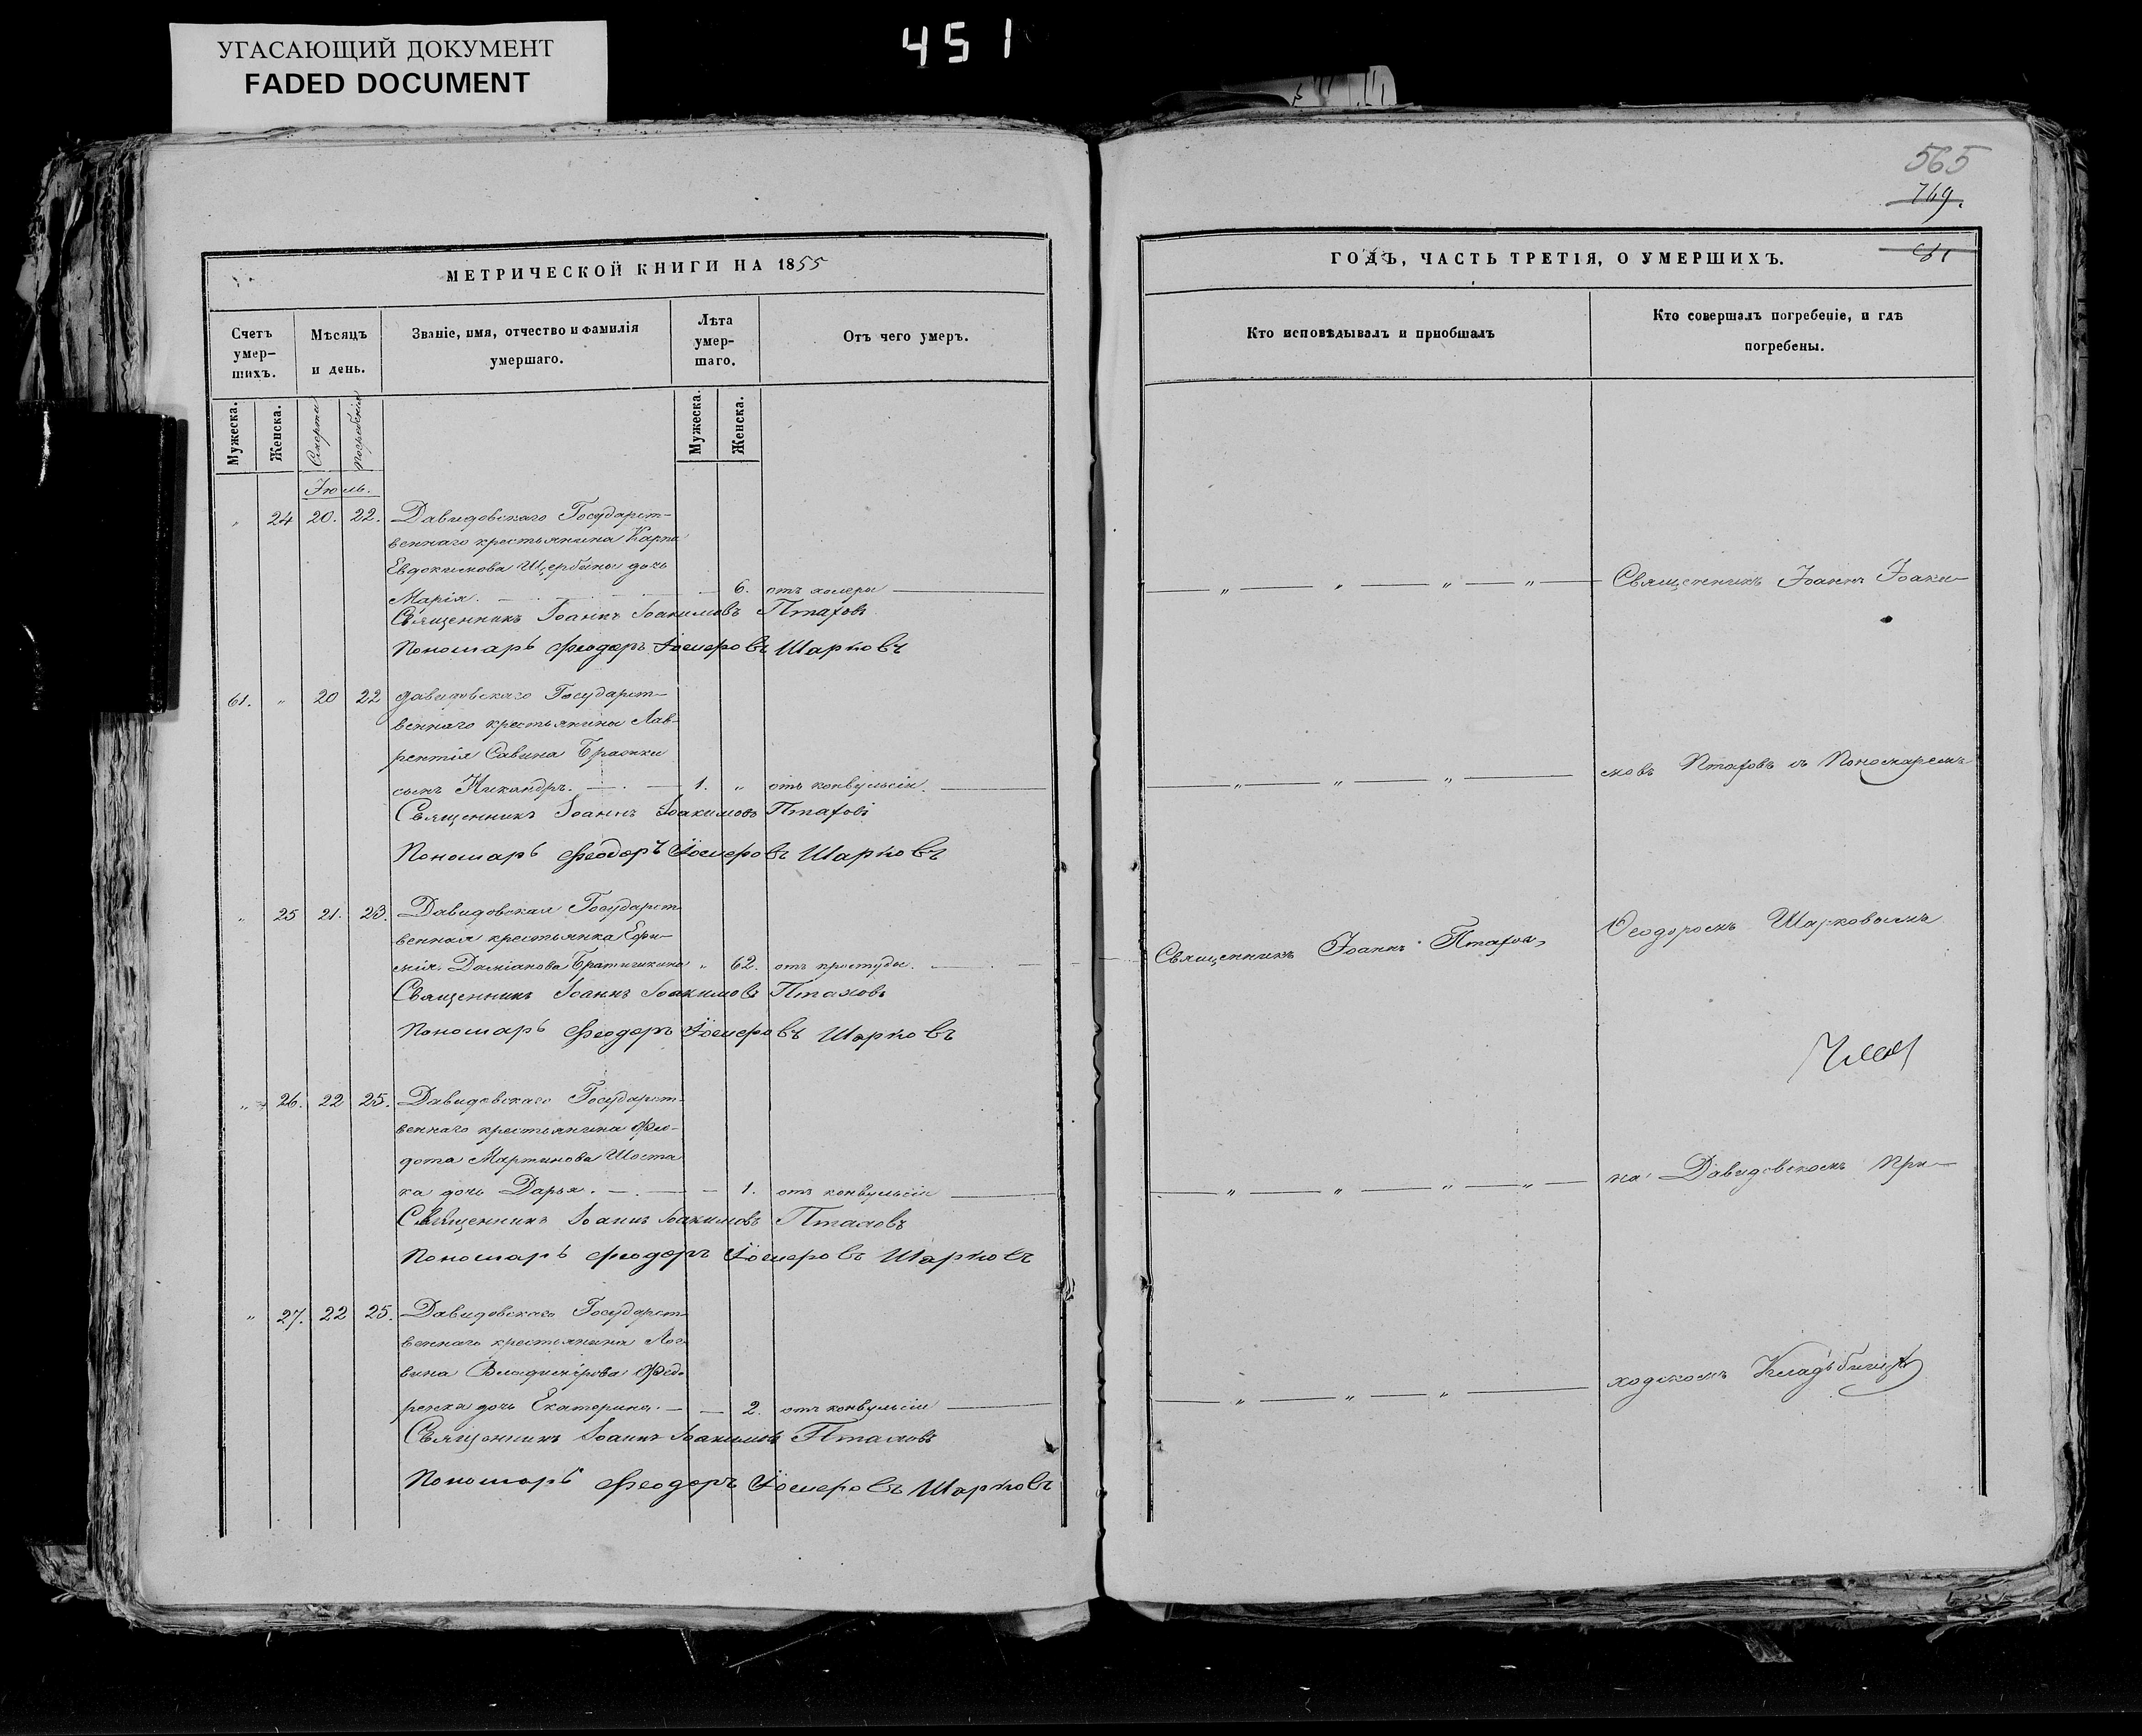 УГАСАЮЩИЙ ДОКУМЕНТ
FADED DOCUMENT
451
МЕТРИЧЕСКОЙ КНИГИ НА 1855
Счетъ умер-шихъ.
Мѣсяцъ и день.
Званіе, имя, отчество и фамилія умершаго.
Лѣта умер-шаго.
Отъ чего умеръ.
Мужеска.
Женска.
Смерти
Погребенія
Мужеска.
Женска.
Іюль.
" 24 20. 22. Давидовскаго Государст-
веннаго крестьянина Карпа
Евдокимова Щербины дочь
Марія. 6. отъ холеры
Священникъ Іоаннъ Іоакимовъ Птаховъ
Пономарь Феодоръ Шарковъ
61. " 20 22 Давидовскаго Государст-
веннаго крестьянина Лав-
рентія Савина Бражки
сынъ Никандръ. 1. " отъ конвульсіи.
Священникъ Іоаннъ Іоакимовъ Птаховъ
Пономарь Феодоръ Шарковъ
" 25 21. 23. Давидовская Государст-
венная крестьянка Ефи-
мія Даміанова " 62. отъ простуды.
Священникъ Іоаннъ Іоакимовъ Птаховъ
Пономарь Феодоръ Шарковъ
" 26. 22 25. Давидовскаго Государст-
веннаго крестьянина Фео-
дота Мартинова Шоста
ка дочь Дарья. 1. отъ конвульсіи
Священникъ Іоаннъ Іоакимовъ Птаховъ
Пономарь Феодоръ Шарковъ
" 27. 22 25. Давидовскаго Государст-
веннаго крестьянина Лог-
вина Владимірова Федо
ренка дочь Екатерина. 2. отъ конвульсіи
Священникъ Іоаннъ Іоакимовъ Птаховъ
Пономарь Феодоръ Шарковъ
565
749.
ГОДЪ, ЧАСТЬ ТРЕТІЯ, О УМЕРШИХЪ.
Кто исповѣдывалъ и пріобщалъ
Кто совершалъ погребеніе, и гдѣ погребены.
" " " " Священникъ Іоаннъ Іоаки-
" " " мовъ Птаховъ съ Пономаремъ
Священникъ Іоаннъ Птахов, Феодоромъ Шарковымъ
" " " " на Давидовскомъ при-
" " " ходскомъ Кладъбищѣ